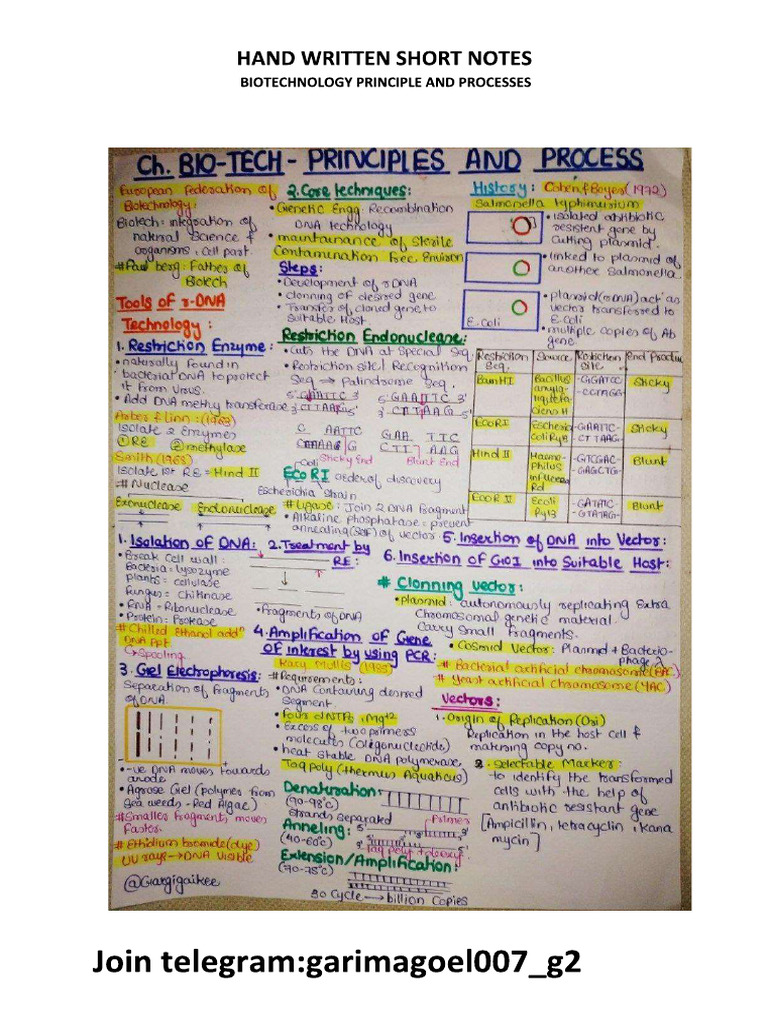 HAND WRITTEN SHORT NOTES
BIOTECHNOLOGY PRINCIPLE AND PROCESSES
Ch. BIO-TECH - PRINCIPLES AND PROCESS
European Federation of
Biotechnology:
Biotech: integration of
natural Science &
organisms, cell part.
# Paul berg: Father of
Biotech
Tools of r-DNA
Technology:
1. Restriction Enzyme:
• naturally found in
bacterial DNA to protect
it from virus.
• Add DNA methy transferase
Arber & Linn: (1963)
Isolate 2 Enzymes
① RE ② methylase
Smith (1968)
Isolate 1st RE = Hind II
# Nuclease
Exonuclease Endonuclease
2. Core techniques:
• Genetic Engg: Recombination
DNA technology
• maintainance of Sterile
Contamination free Environ
Steps:
• Development of rDNA
• clonning of desired gene
• Transfer of cloned gene to
Suitable Host
Restriction Endonuclease:
• Cuts the DNA at Special Seq.
• Restriction site | Recognition
Seq → Palindrome Seq.
5' GAATTC 3' 5' GAATTC 3'
3' CTTAAG 5' 3' CTTAAG 5'
G AATTC GAA TTC
CTTAA G CTT AAG
Sticky End Blunt End
coli
ECo RI order of discovery
Escherichia Strain
# Ligase: Join 2 DNA fragment
• Alkaline phosphatase: prevent
annealing (Self) of vector
History: Cohen & Boyer (1972)
Salmonella typhimurium
• isolated antibiotic
resistent gene by
cutting plasmid.
• linked to plasmid of
another Salmonella.
• plasmid (rDNA) act as
vector transferred to
E.Coli
• multiple copies of Ab
gene.
E.Coli
Restriction Seq. Source Restriction site End Produc
BamHI Bacillus -GGATCC- -CCTAGG- Sticky
ECoRI Escheria Coli Ry13 -GAATTC- -CTTAAG- Sticky
Hind II Haemo-Philus Influenzae Rd -GTCGAC- -GAGCTG- Blunt
ECOR V Ecoli Py13 -GATATC- -GTATAG- Blunt
1. Isolation of DNA:
• Break Cell wall:
Bacteria = Lysozyme
plants = cellulase
fungus = chitinase
• RNA = Ribonuclease
• Protein = Protease
# Chilled Ethanol addn
DNA ppt
↳ Spooling
2. Treatment by
RE:
• Fragments of DNA
5. Insertion of DNA into Vector:
6. Insertion of GOI into Suitable Host:
# Clonning vector:
• plasmid: autonomously replicating extra
chromosomal genetic material.
Carry Small fragments.
• Cosmid Vector: Plasmid + Bacterio-
phage λ
# Bacterial artificial chromosome (BAC)
# Yeast artificial chromosome (YAC)
3. Gel Electrophoresis:
Separation of fragments
of DNA.
• -ve DNA moves towards
anode
• Agrose Gel (polymer from
Sea weeds - Red Algae)
# Smaller fragments moves
faster.
# Ethidium bromide (dye)
UV rays → DNA visible
@Gargigaikee
4. Amplification of Gene
of interest by using PCR:
Kary Mullis (1985)
# Requirements:
• DNA containing desired
Segment
• four dNTPs, Mg+2
• Excess of two primers
molecules (oligonucleotide)
• heat Stable DNA polymerase
Taq poly (thermus Aquaticus)
Denaturation:
(90-98°c)
Strands separated
Anneling:
(40-60°c)
Primer
5' 3'
3' 5'
Taq poly + deoxy
Extension/Amplification:
(70-75°c)
30 Cycle → billion Copies
Vectors:
1. Origin of Replication (Ori)
Replication in the host cell &
maternsing copy no.
2. Selectable Marker
to identify the transformed
cells with the help of
antibiotic resistant gene
[Ampicillin, tetracyclin, kana
mycin]
Join telegram:garimagoel007_g2